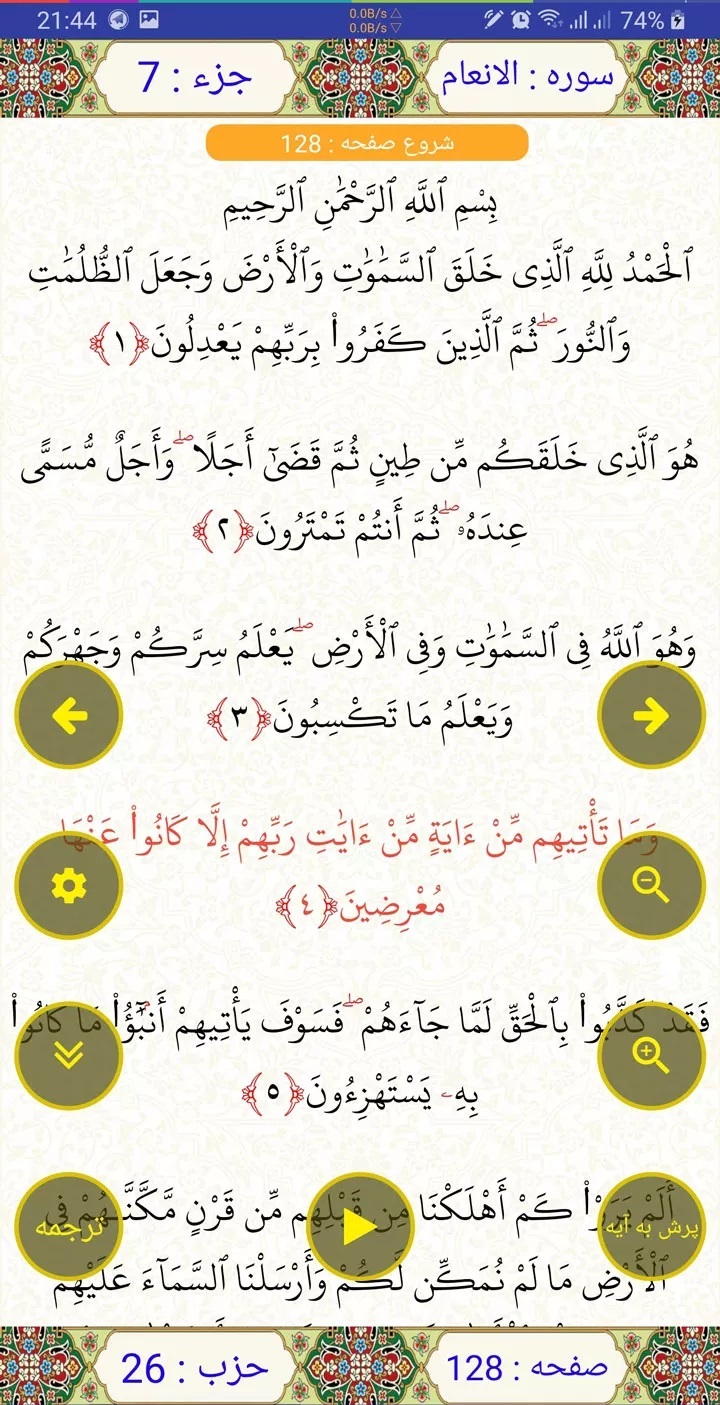 21:44
0.0B/s △
0.0B/s ▽
74%
سوره : الانعام
جزء : 7
شروع صفحه : 128
بِسْمِ ٱللَّهِ ٱلرَّحْمَٰنِ ٱلرَّحِيمِ
ٱلْحَمْدُ لِلَّهِ ٱلَّذِى خَلَقَ ٱلسَّمَٰوَٰتِ وَٱلْأَرْضَ وَجَعَلَ ٱلظُّلُمَٰتِ
وَٱلنُّورَ ۖ ثُمَّ ٱلَّذِينَ كَفَرُوا۟ بِرَبِّهِمْ يَعْدِلُونَ ﴿١﴾
هُوَ ٱلَّذِى خَلَقَكُم مِّن طِينٍ ثُمَّ قَضَىٰٓ أَجَلًا ۖ وَأَجَلٌ مُّسَمًّى
عِندَهُۥ ۖ ثُمَّ أَنتُمْ تَمْتَرُونَ ﴿٢﴾
وَهُوَ ٱللَّهُ فِى ٱلسَّمَٰوَٰتِ وَفِى ٱلْأَرْضِ ۖ يَعْلَمُ سِرَّكُمْ وَجَهْرَكُمْ
وَيَعْلَمُ مَا تَكْسِبُونَ ﴿٣﴾
وَمَا تَأْتِيهِم مِّنْ ءَايَةٍ مِّنْ ءَايَٰتِ رَبِّهِمْ إِلَّا كَانُوا۟ عَنْهَا
مُعْرِضِينَ ﴿٤﴾
فَقَدْ كَذَّبُوا۟ بِٱلْحَقِّ لَمَّا جَآءَهُمْ ۖ فَسَوْفَ يَأْتِيهِمْ أَنۢبَٰٓؤُا۟ مَا كَانُوا۟
بِهِۦ يَسْتَهْزِءُونَ ﴿٥﴾
أَلَمْ يَرَوْا۟ كَمْ أَهْلَكْنَا مِن قَبْلِهِم مِّن قَرْنٍ مَّكَّنَّٰهُمْ فِى
ٱلْأَرْضِ مَا لَمْ نُمَكِّن لَّكُمْ وَأَرْسَلْنَا ٱلسَّمَآءَ عَلَيْهِم
پرش به آیه
ترجمه
صفحه : 128
حزب : 26